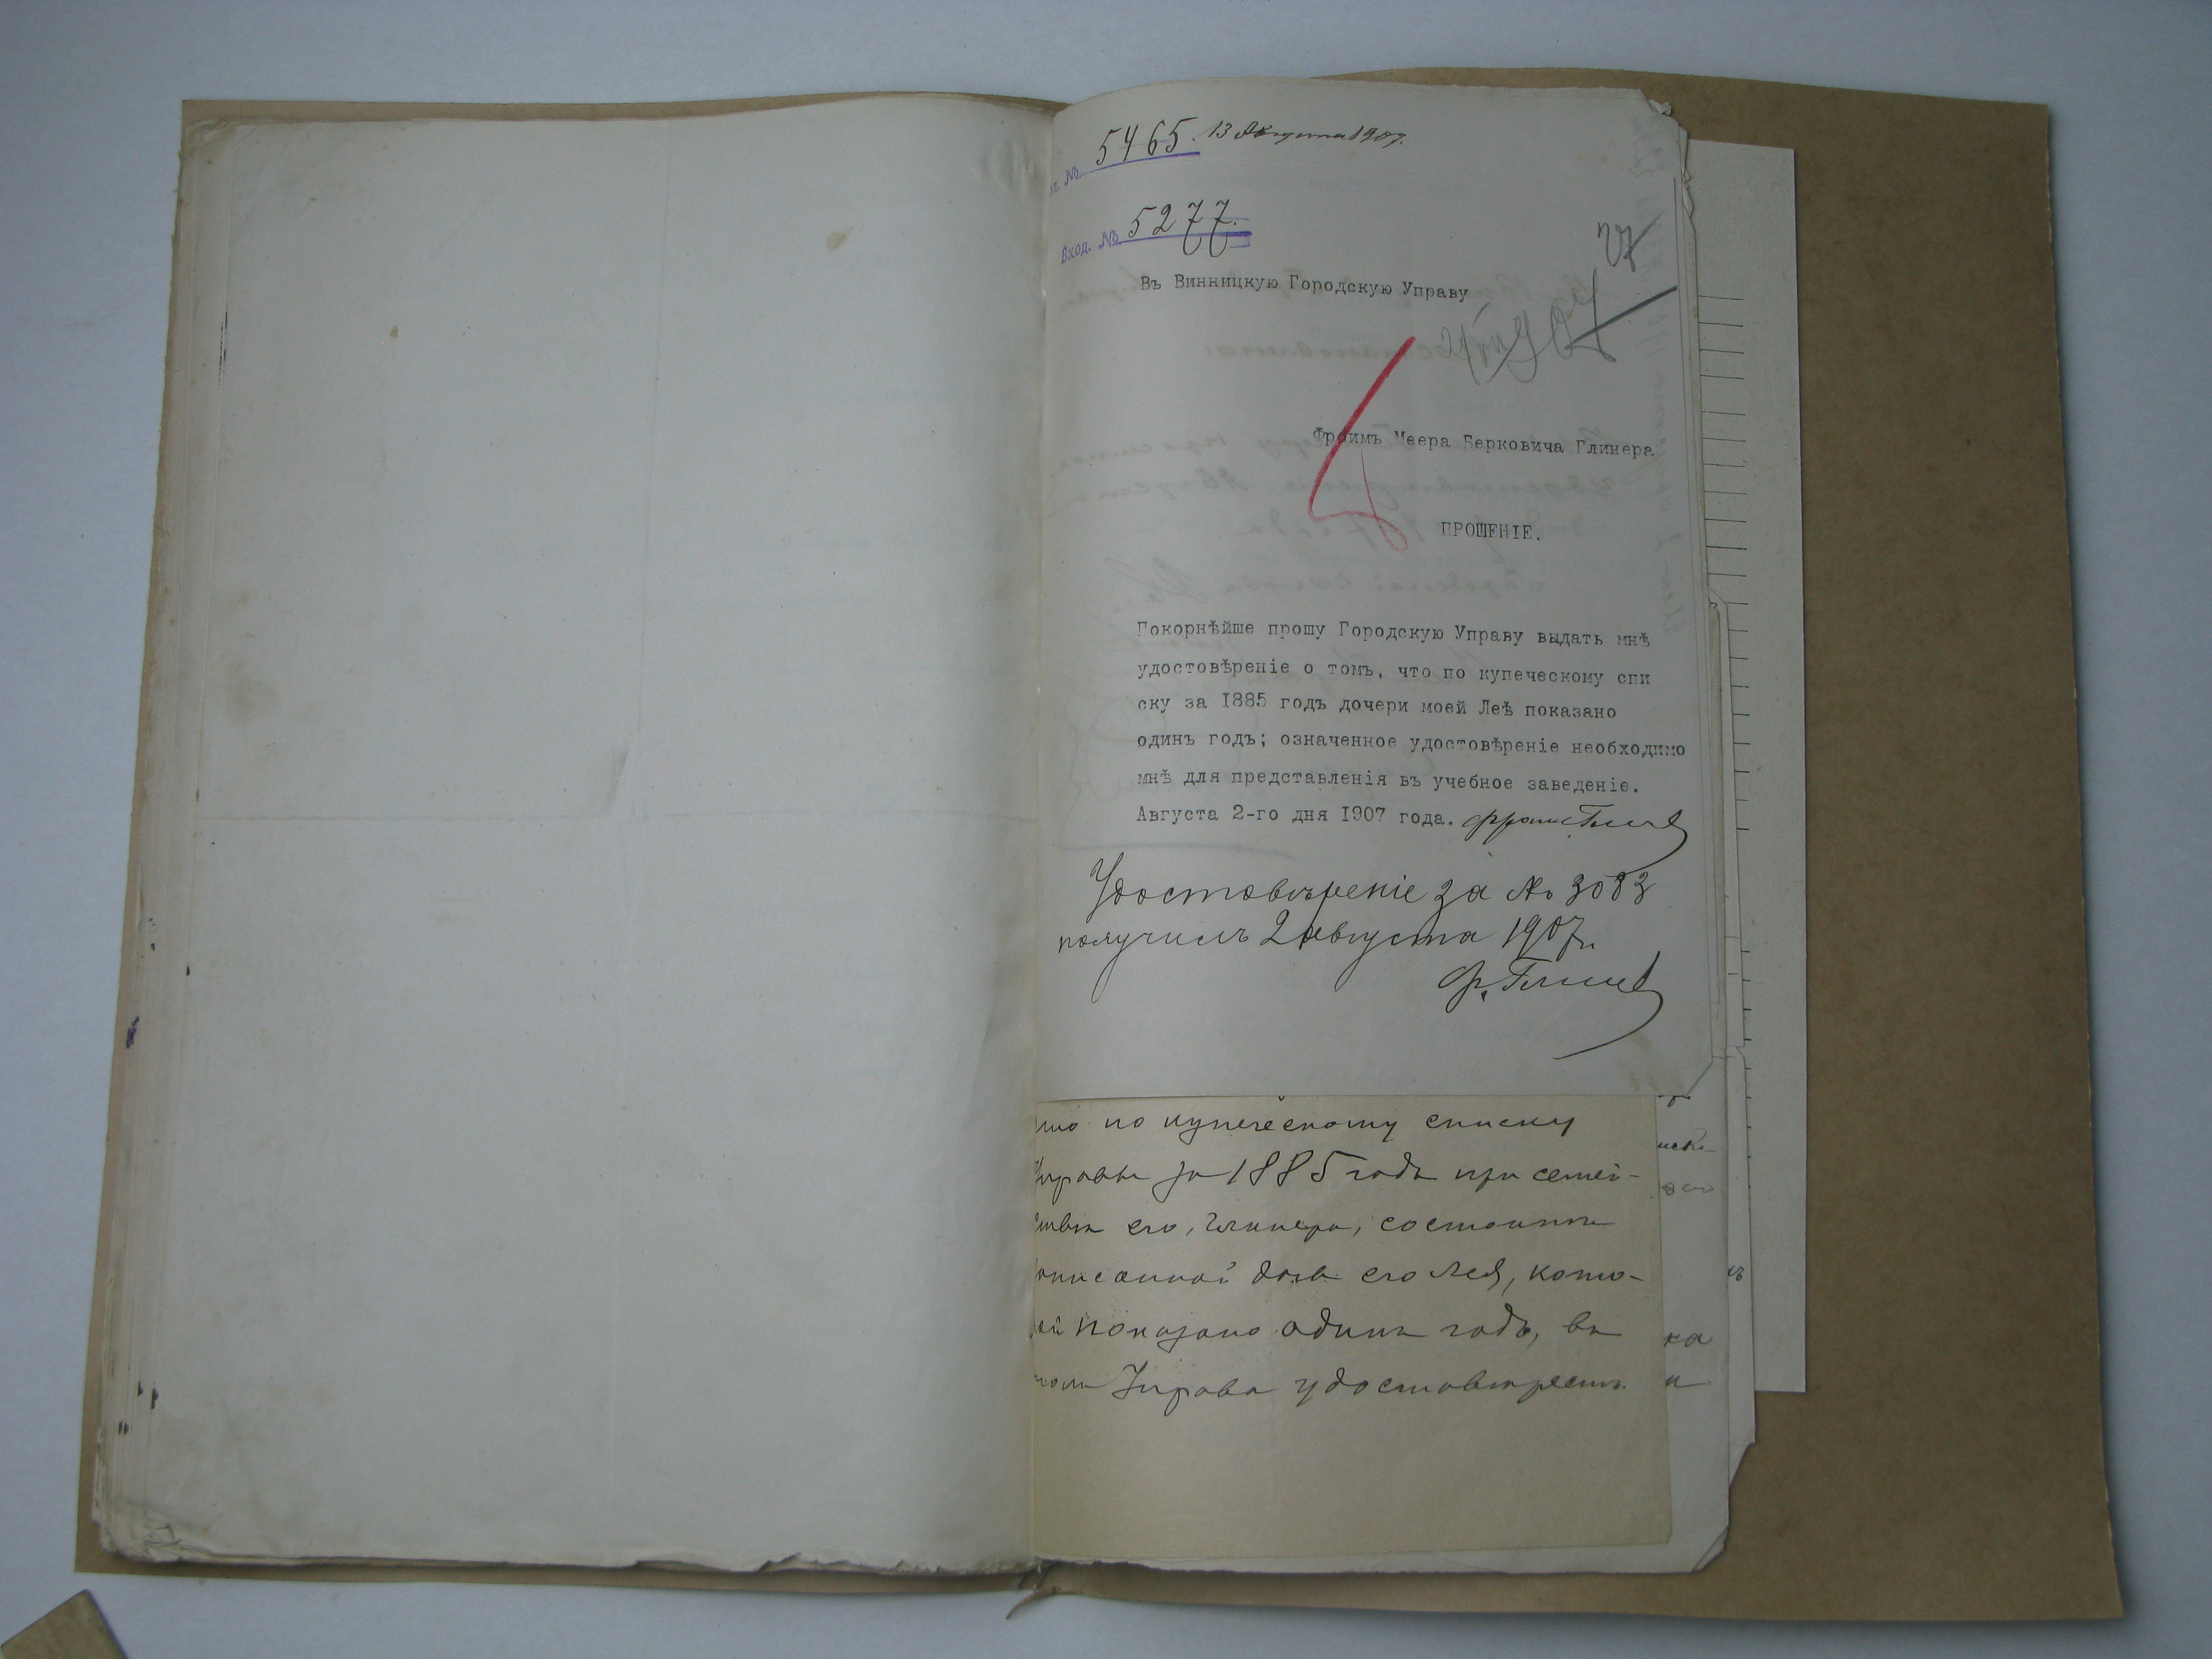 № 5465. 13 Августа 1907.
Вход. № 5277.
Въ Винницкую Городскую Управу
Фроимъ Меера Берковича Глинера
ПРОШЕНІЕ.
Покорнѣйше прошу Городскую Управу выдать мнѣ
удостовѣреніе о томъ, что по купеческому спи
ску за 1885 годъ дочери моей Леѣ показано
одинъ годъ; означенное удостовѣреніе необходимо
мнѣ для представленія въ учебное заведеніе.
Августа 2-го дня 1907 года.
Удостовѣреніе за № 3083
получилъ 2 августа 1907 г.
что по купеческому списку
Управы за 1885 годъ при семей-
ствѣ его, Глинера, состоитъ
записанной дочь его Лея, кото-
рой показано одинъ годъ, въ
чемъ Управа удостовѣряетъ.
ка
и